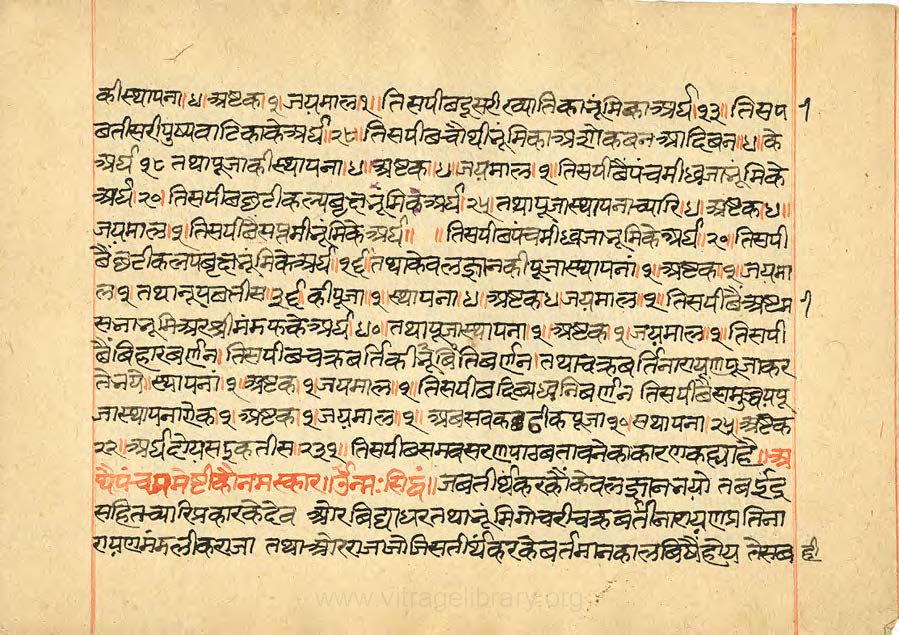 की स्थापना।४। अष्टक।१। जयमाल१॥ तिस पीछ दूसरी ख्यातिका भूंमिका अर्घ।१३॥ तिस प १
छ तीसरी पुष्पवाटिका के अर्घ।२८॥ तिस पीछ चौथी भूंमिका अशोकबन आदि बन॥४॥ के
अर्घ १८ तथा पूजा की स्थापना।४। अष्टक।४। जयमाल।१॥ तिस पीछैं पंचमी ध्वजा भूंमि के
अर्घ।२०। तिस पीछ छटी कल्पबृक्ष भूंमि के अर्घ।२५। तथा पूजा स्थापना च्यारि।४। अष्टक।४॥
जयमाल।१। तिस पीछैं सप्तमी भूंमि के अर्घ॥ ॥ तिस पीछ पंचमी ध्वजा भूंमि के अर्घ।२०। तिस पी
छैं छटी कलपबृक्ष भूंमि के अर्घ।१६। तथा केवलज्ञान की पूजा स्थापनां।१। अष्टक।१। जयमा
ल।१ तथा भूप बत्तीस ३६ की पूजा।१। स्थापना।४। अष्टक।४ जयमाल।१॥ तिस पीछैं अष्टम १
सभा भूंमि अर श्री मंमफ के अर्घ।४०। तथा पूजा स्थापना।१। अष्टक।१। जयमाल।१॥ तिस पी
छैं बिहार बर्णन। तिस पीछ चक्रबर्ति की बिभूति बर्णन। तथा चक्रबर्ति नारायण पूजा कर
ते भये॥ स्थापनां।१। अष्टक।१। जयमाल।१॥ तिस पीछ दिव्यध्वनि बर्णन तिस पीछैं समुच्चय पू
जा स्थापना एक।१। अष्टक।१। जयमाल।१॥ अब सब क ठीक पूजा १० स्थापना।२५। अष्टक
२२॥ अर्घ दोय स इकतीस।२३१॥ तिस पीछ समवसरण पाठ बतावने का कारण कह्या है॥ अ
थ पंच परमेष्टी कौ नमस्कार॥ उँ नमः सिद्धं॥ जब तीर्थंकर कौं केवलज्ञान भयो तब इंद्र
सहित च्यारि प्रकार के देव और बिद्याधर तथा भूंमिगोचरी चक्रबर्ती नारायण प्रतिना
रायण मंमलीक राजा तथा और राजा जो जिस तीर्थंकर के बर्तमान काल बिषैं होय ते सब ही
www.vitragelibrary.org